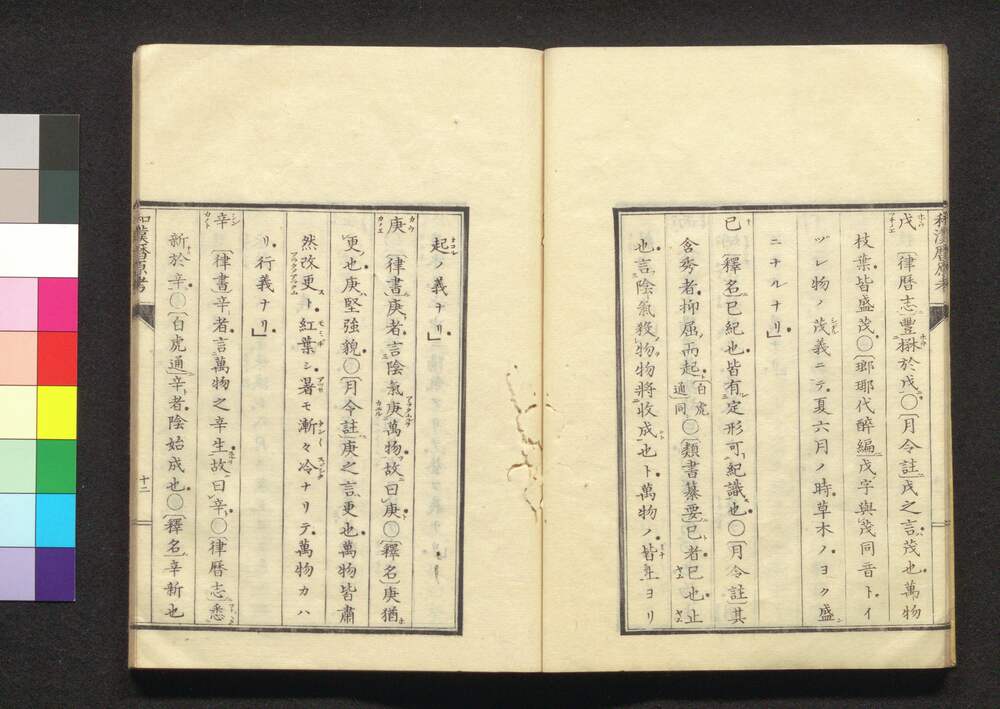 和漢暦原考
戊 〔律暦志〕豐楙於戊○〔月令註〕戊之言茂也萬物
枝葉皆盛茂○〔瑯琊代醉編〕戊字與茂同音トイ
ヅレ物ノ茂義ニテ夏六月ノ時草木ノヨク盛
ニナルナリ」
己 〔釋名〕己紀也皆有定形可紀識也○〔月令註〕其
含秀者抑屈而起〔白虎通同〕○〔類書纂要〕己者已也止
也言陰氣殺物物將收成也ト萬物ノ皆止ヨリ
起ノ義ナリ」
庚 〔律書〕庚者言陰氣庚萬物故曰庚○〔釋名〕庚猶
更也庚堅強貌○〔月令註〕庚之言更也萬物皆肅
然改更スト紅葉シ暑モ漸々冷ナリテ萬物カハ
リ行義ナリ」
辛 〔律書〕辛者言萬物之辛生故曰辛○〔律暦志〕悉
新於辛○〔白虎通〕辛者陰始成也○〔釋名〕辛新也
和漢暦原考
十二